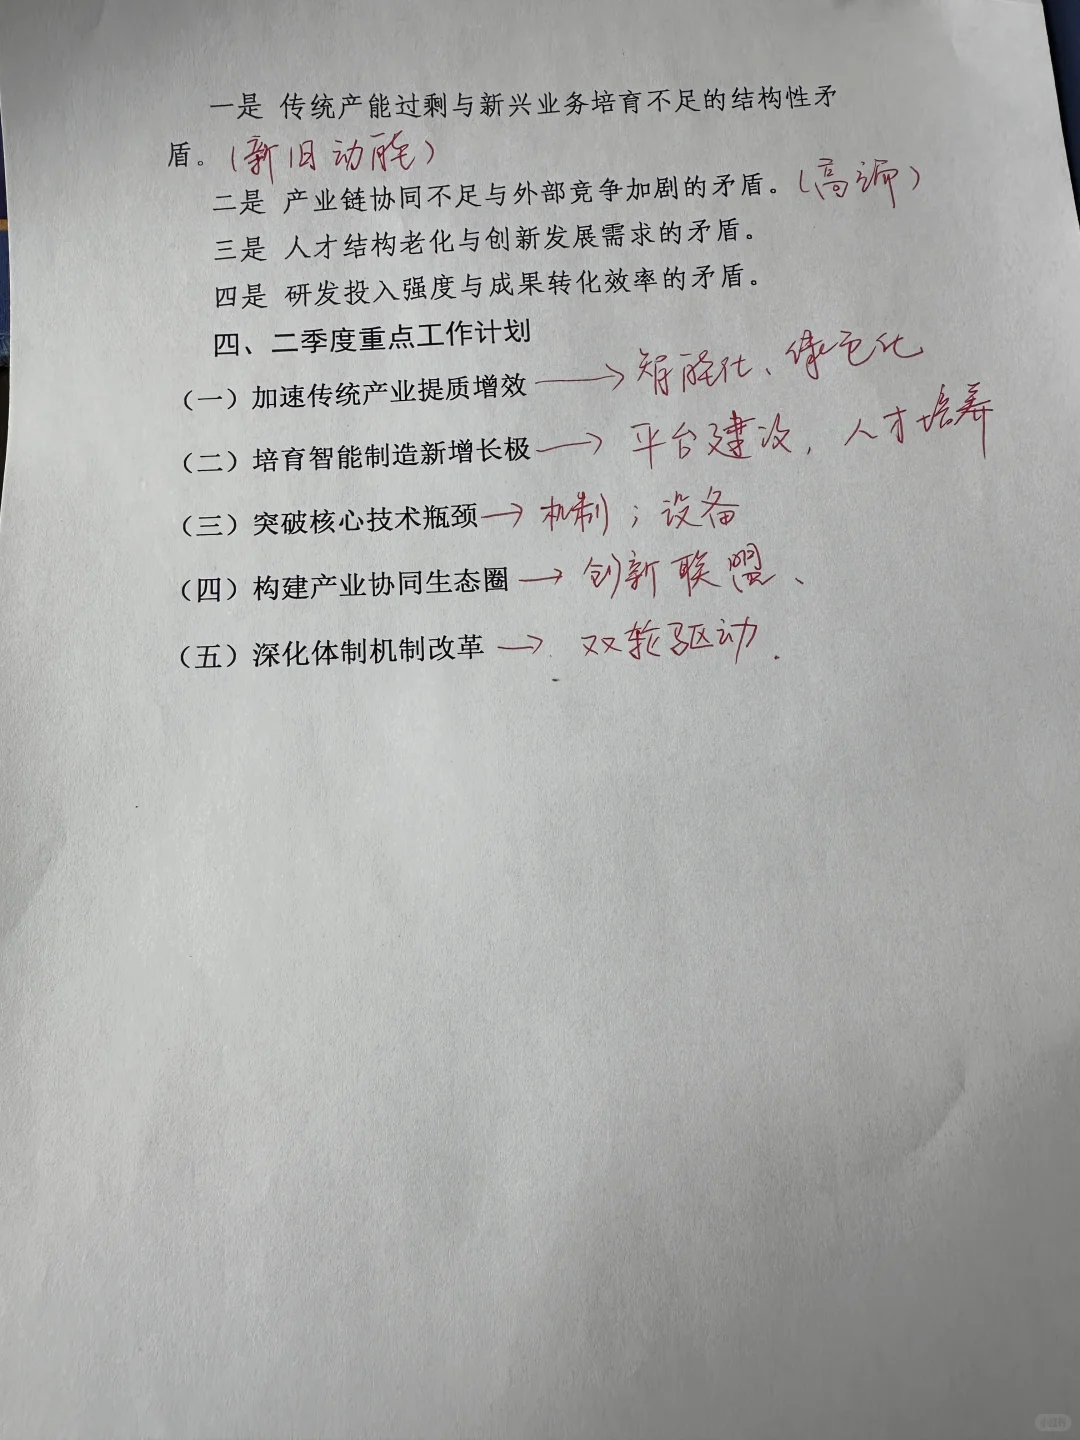 一是 传统产能过剩与新兴业务培育不足的结构性矛
盾。(新旧动能)
二是 产业链协同不足与外部竞争加剧的矛盾。(高端)
三是 人才结构老化与创新发展需求的矛盾。
四是 研发投入强度与成果转化效率的矛盾。
四、二季度重点工作计划
(一)加速传统产业提质增效 → 智能化、绿色化
(二)培育智能制造新增长极 → 平台建设,人才培养
(三)突破核心技术瓶颈 → 机制;设备
(四)构建产业协同生态圈 → 创新联盟、
(五)深化体制机制改革 → 双轮驱动.
小红书